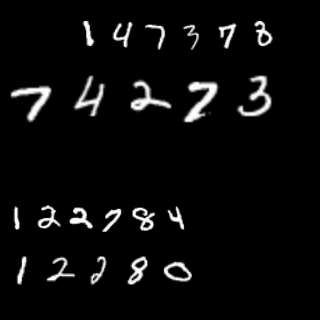 147378
74273
122784
12280